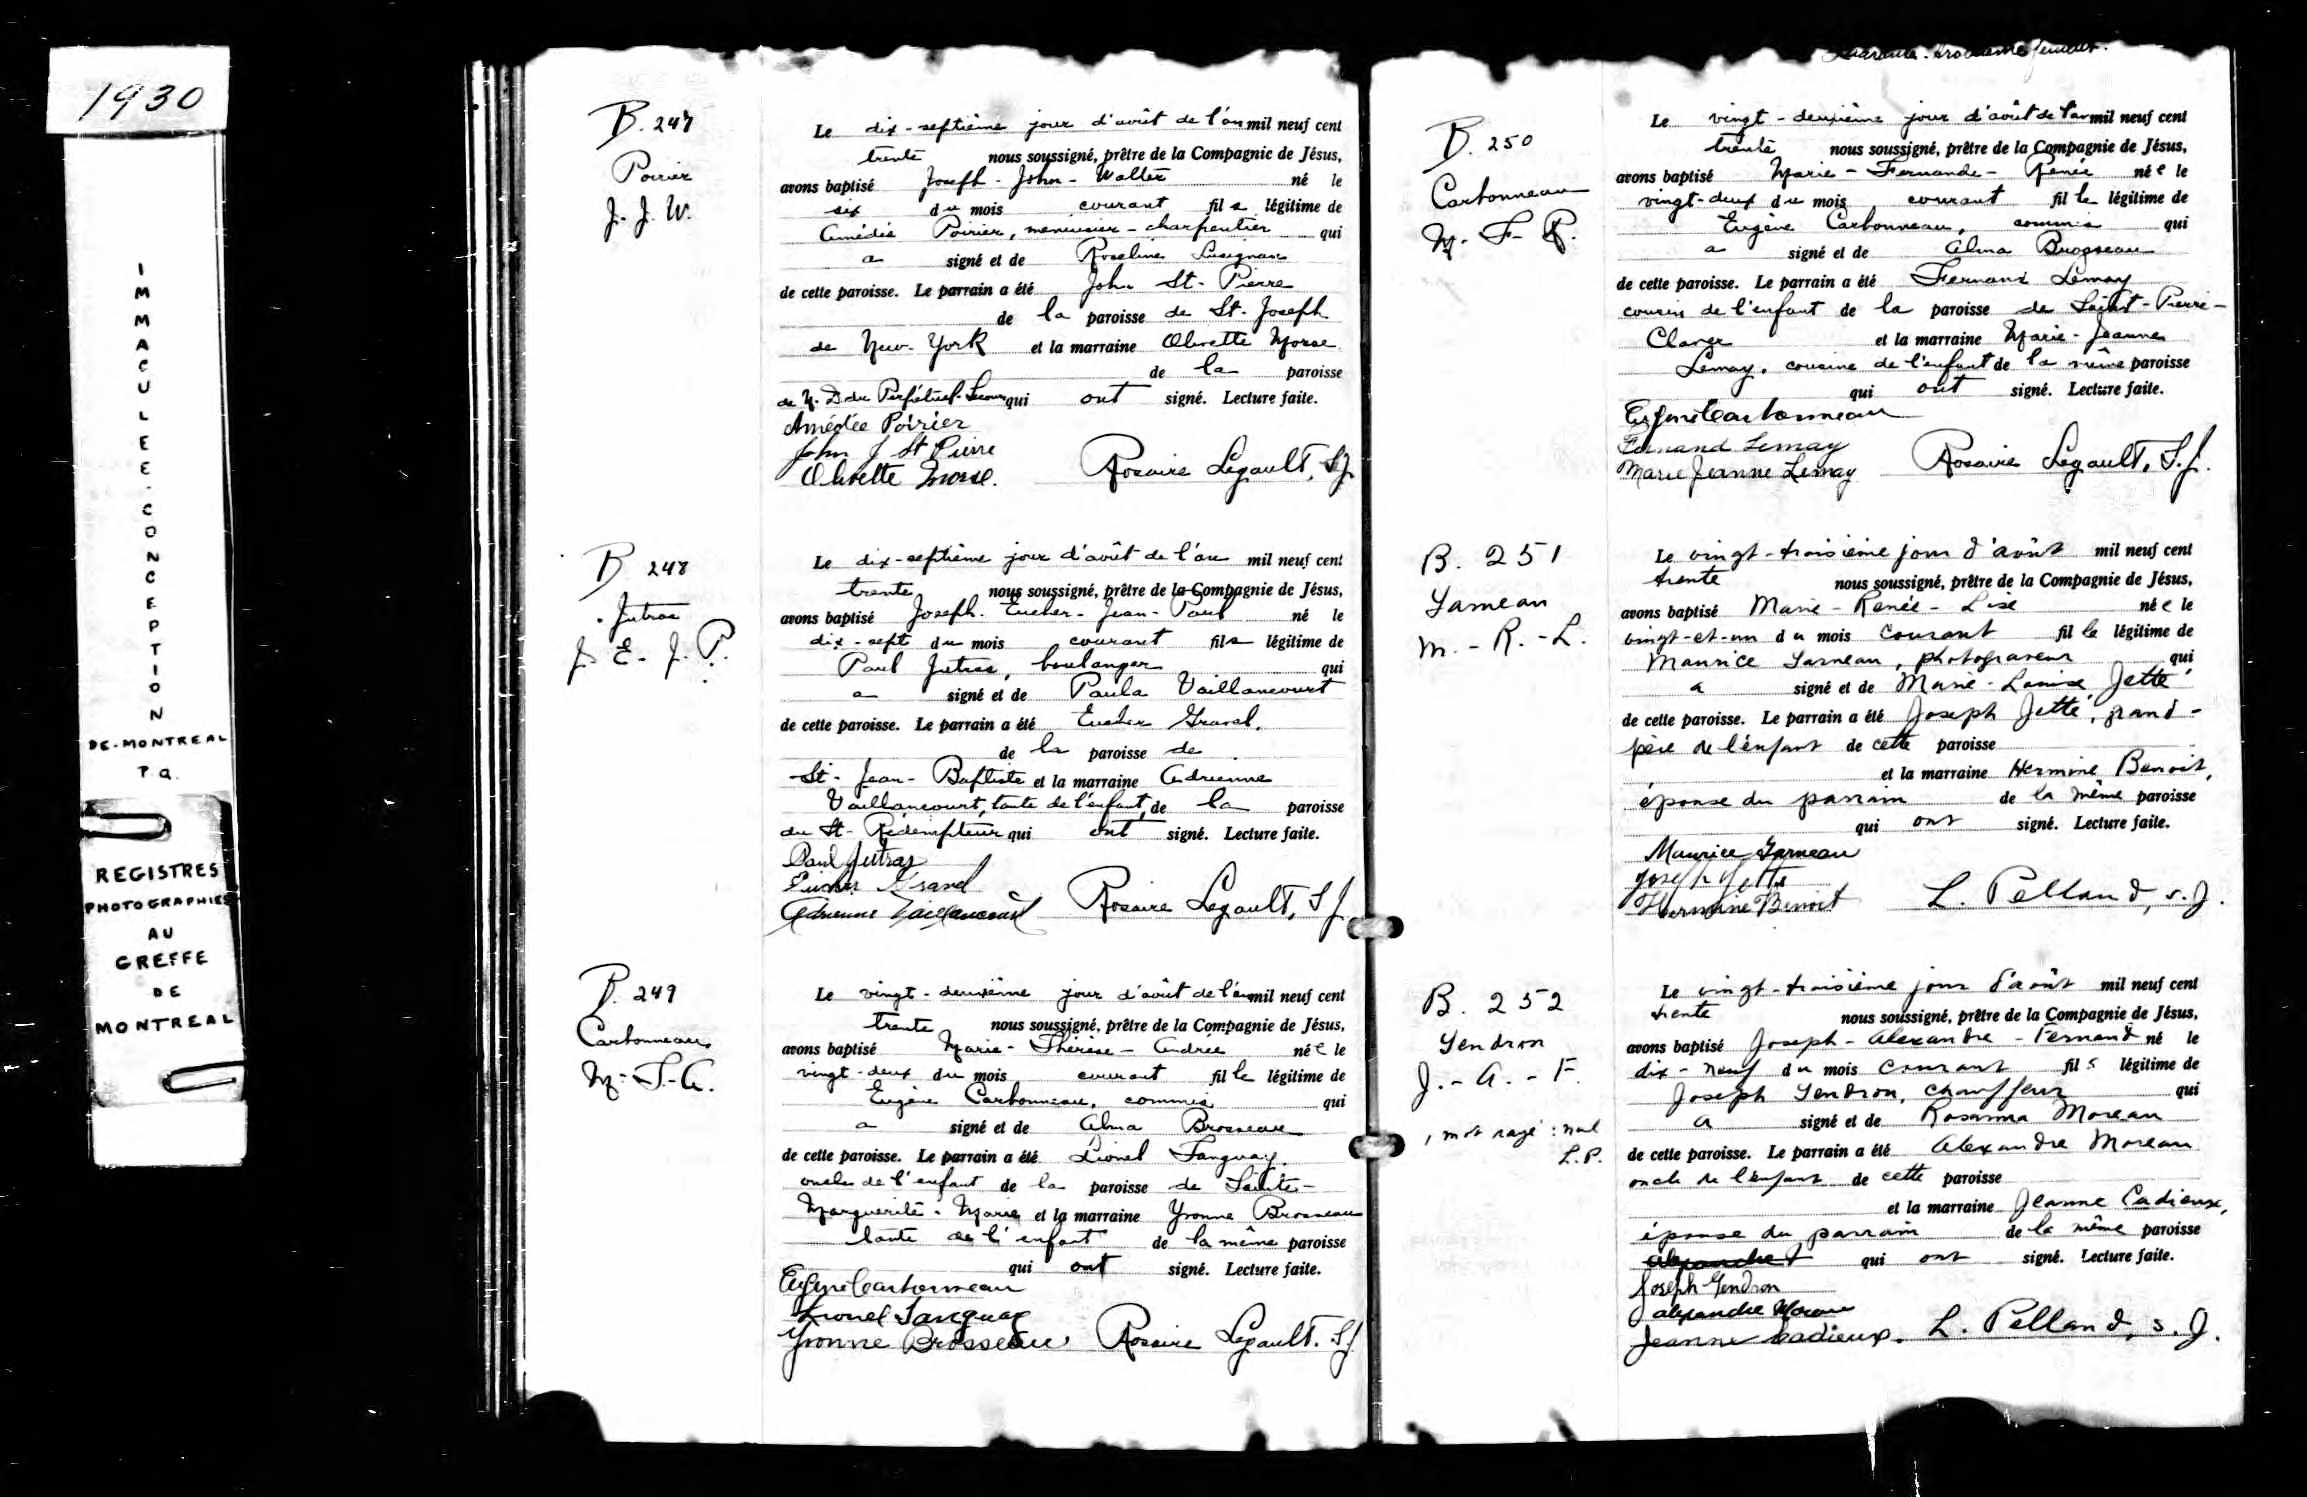 1930
IMMACULEE-CONCEPTION
DE-MONTREAL
P.Q.
REGISTRES
PHOTOGRAPHIES
AU
GREFFE
DE
MONTREAL
B. 247
Poirier
J. J. W.
Le dix-septième jour d'août de l'an mil neuf cent
trente nous soussigné, prêtre de la Compagnie de Jésus,
avons baptisé Joseph-John-Walter né le
six du mois courant fils légitime de
Amédée Poirier, menuisier-charpentier qui
a signé et de Roseline Lusignan
de cette paroisse. Le parrain a été John St-Pierre
de la paroisse de St. Joseph
de New-York et la marraine Olivette Morse
de la paroisse
de N.D du Perpétuel-Secours qui ont signé. Lecture faite.
Amédée Poirier
John J St Pierre
Olivette Morse.
Rosaire Legault, S.J.
B 248
Jutras
J. E. J. P.
Le dix-septième jour d'août de l'an mil neuf cent
trente nous soussigné, prêtre de la Compagnie de Jésus,
avons baptisé Joseph-Eucher-Jean-Paul né le
dix-sept du mois courant fils légitime de
Paul Jutras, boulanger qui
a signé et de Paula Vaillancourt
de cette paroisse. Le parrain a été Eucher Gravel,
de la paroisse de
St-Jean-Baptiste et la marraine Adrienne
Vaillancourt, tante de l'enfant, de la paroisse
du St-Rédempteur qui ont signé. Lecture faite.
Paul Jutras
Eucher Gravel
Adrienne Vaillancourt
Rosaire Legault, S.J.
B. 249
Carbonneau
M.-T.-A.
Le vingt-deuxième jour d'août de l'an mil neuf cent
trente nous soussigné, prêtre de la Compagnie de Jésus,
avons baptisé Marie-Thérèse-Andrée née le
vingt-deux du mois courant fille légitime de
Eugène Carbonneau, commis qui
a signé et de Alma Brosseau
de cette paroisse. Le parrain a été Lionel Tanguay,
oncle de l'enfant de la paroisse de Sainte-
Marguerite-Marie et la marraine Yvonne Brosseau
tante de l'enfant de la même paroisse
qui ont signé. Lecture faite.
Eugène Carbonneau
Lionel Tanguay
Yvonne Brosseau
Rosaire Legault. S.J.
Quarante-troisième feuillet.
B. 250
Carbonneau
M.-F.-R.
Le vingt-deuxième jour d'août de l'an mil neuf cent
trente nous soussigné, prêtre de la Compagnie de Jésus,
avons baptisé Marie-Fernande-Renée née le
vingt-deux du mois courant fille légitime de
Eugène Carbonneau, commis qui
a signé et de Alma Brosseau
de cette paroisse. Le parrain a été Fernand Lemay
cousin de l'enfant de la paroisse de Saint-Pierre-
Claver et la marraine Marie-Jeanne
Lemay, cousine de l'enfant de la même paroisse
qui ont signé. Lecture faite.
Eugène Carbonneau
Fernand Lemay
Marie Jeanne Lemay
Rosaire Legault, S.J.
B. 251
Garneau
M.-R.-L.
Le vingt-troisième jour d'août mil neuf cent
trente nous soussigné, prêtre de la Compagnie de Jésus,
avons baptisé Marie-Renée-Lise née le
vingt-et-un du mois courant fille légitime de
Maurice Garneau, photograveur qui
a signé et de Marie-Louise Jetté
de cette paroisse. Le parrain a été Joseph Jetté, grand-
père de l'enfant de cette paroisse
et la marraine Hermine Benoit,
épouse du parrain de la même paroisse
qui ont signé. Lecture faite.
Maurice Garneau
Joseph Jetté
Hermine Benoit
L. Pelland, s.J.
B. 252
Gendron
J.-A.-F.
1 mot rayé : nul
L.P.
Le vingt-troisième jour d'août mil neuf cent
trente nous soussigné, prêtre de la Compagnie de Jésus,
avons baptisé Joseph-Alexandre-Fernand né le
dix-neuf du mois courant fils légitime de
Joseph Gendron, chauffeur qui
a signé et de Rosanna Moreau
de cette paroisse. Le parrain a été Alexandre Moreau
oncle de l'enfant de cette paroisse
et la marraine Jeanne Cadieux,
épouse du parrain de la même paroisse
qui ont signé. Lecture faite.
Joseph Gendron
Alexandre Moreau
Jeanne Cadieux.
L. Pelland, s.J.